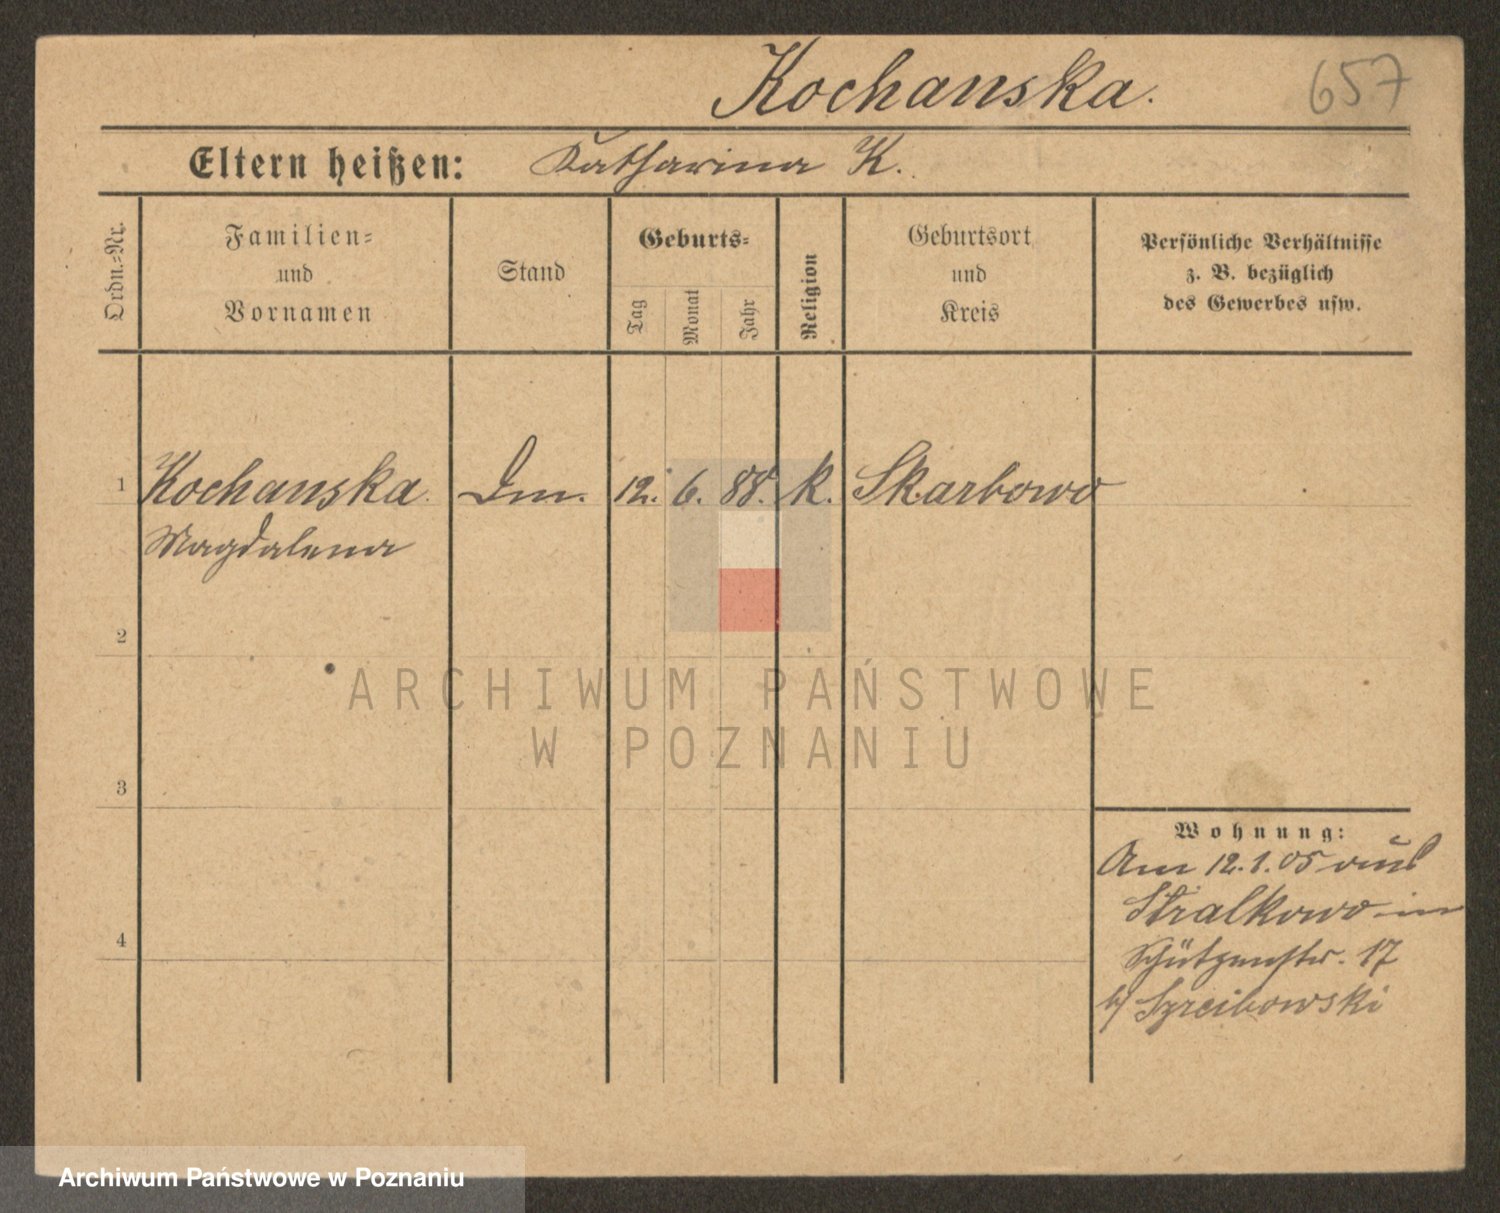 Kochanska.
657
Eltern heißen: Katharina K.
Ordn.-Nr.
Familien-
und
Vornamen
Stand
Geburts-
Tag
Monat
Jahr
Religion
Geburtsort
und
Kreis
Persönliche Verhältnisse
z. B. bezüglich
des Gewerbes usw.
1 Kochanska Dm. 12. 6. 88. k. Skarbowo
Magdalena
2
3
4
Wohnung:
Am 12.1.05 aus
Stralkowo in
Schützenstr. 17
b/ Szreibowski
ARCHIWUM PAŃSTWOWE
W POZNANIU
Archiwum Państwowe w Poznaniu